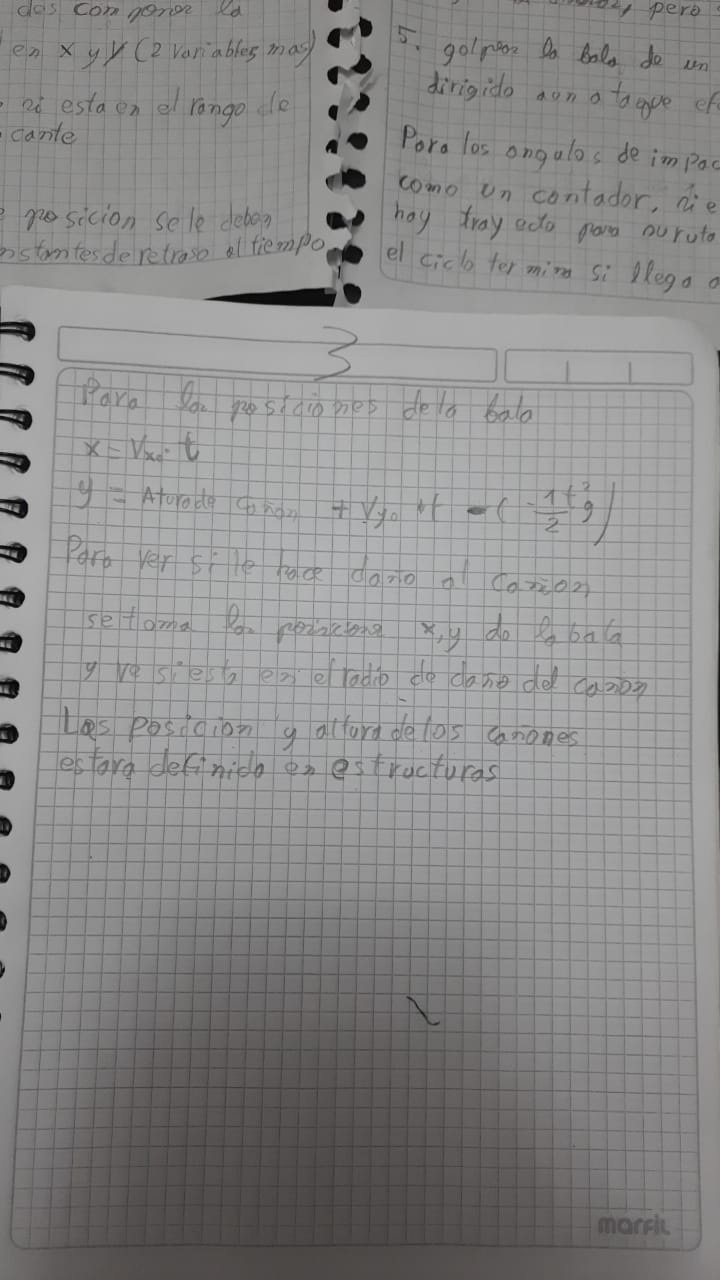 das componer la
en x y y (2 variables mas)
si esta en el rango de
cante
posicion se le deben
nstantes de retraso al tiempo
, pero
5. golpear la bala de un
dirigido a un ataque ef
Para los angulos de impac
como un contador, si e
hay trayecto para su ruta
el ciclo termina si llega a
3
Para las posiciones de la bala
x = Vxo · t
y = Aturade cañon + Vyo * t - ( - 1/2 t² g )
Para ver si le hace daño al cañon
se toma la x, y de la bala
y ve si esta en el radio de daño del cañon
Las posicion y altura de los cañones
estara definido en estructuras
marfil